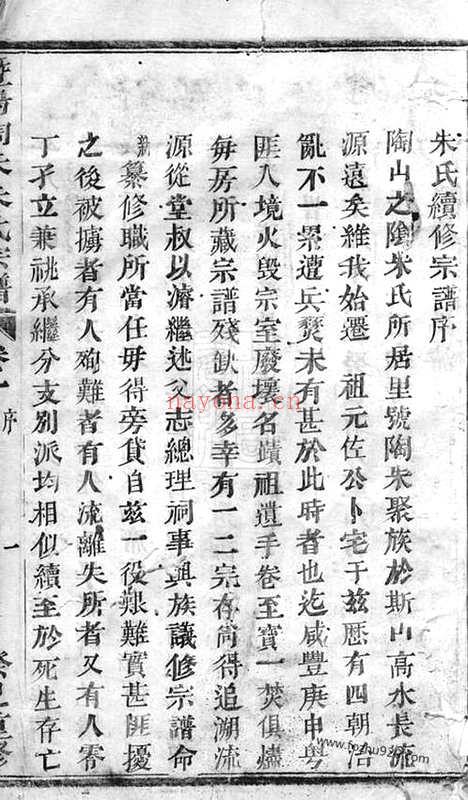 朱氏續修宗譜序
陶山之陰朱氏所居里號陶朱聚族於斯山高水長流
源遠矣維我始遷 祖元佐公卜宅于兹歷有四朝治
亂不一景遭兵燹未有甚於此時者也迄咸豐庚申粤
匪入境火毁宗室廢壞名蹟祖遺手卷至寳一焚俱燼
每房所藏宗譜殘缺者多幸有一二宗存尚得追溯流
源從堂叔以濟繼述父志總理祠事與族議修宗譜命
新纂修職所當任毋得旁貸自兹一役艱難實甚匪擾
之後被擄者有人殉難者有人流離失所者又有人零
丁孑立兼祧承繼分支别派均相似續至於死生存亡
朱氏宗譜 卷一 序 一 重修
nayona.cn